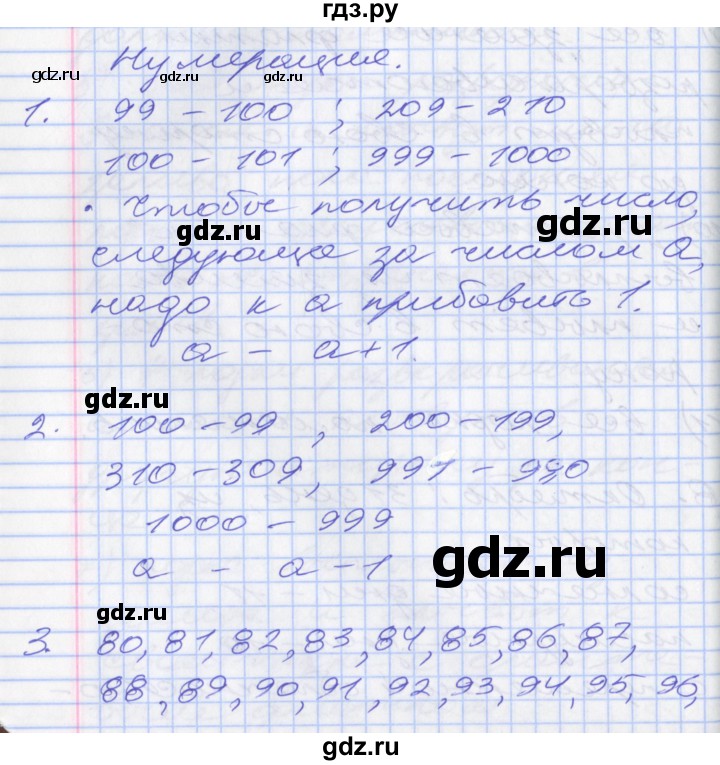 гдз.ру
gdz.ru gdz.ru gdz.ru
Нумерация.
1. 99 – 100 ; 209 – 210
100 – 101 ; 999 – 1000
• Чтобы получить число,
gdz.ru gdz.ru
следующее за числом а,
надо к а прибавить 1.
а – а+1.
gdz.ru
2. 100 – 99 , 200 – 199,
310 – 309, 991 – 990
1000 – 999
а – а – 1
gdz.ru
gdz.ru
3. 80, 81, 82, 83, 84, 85, 86, 87,
88, 89, 90, 91, 92, 93, 94, 95, 96,
gdz.ru